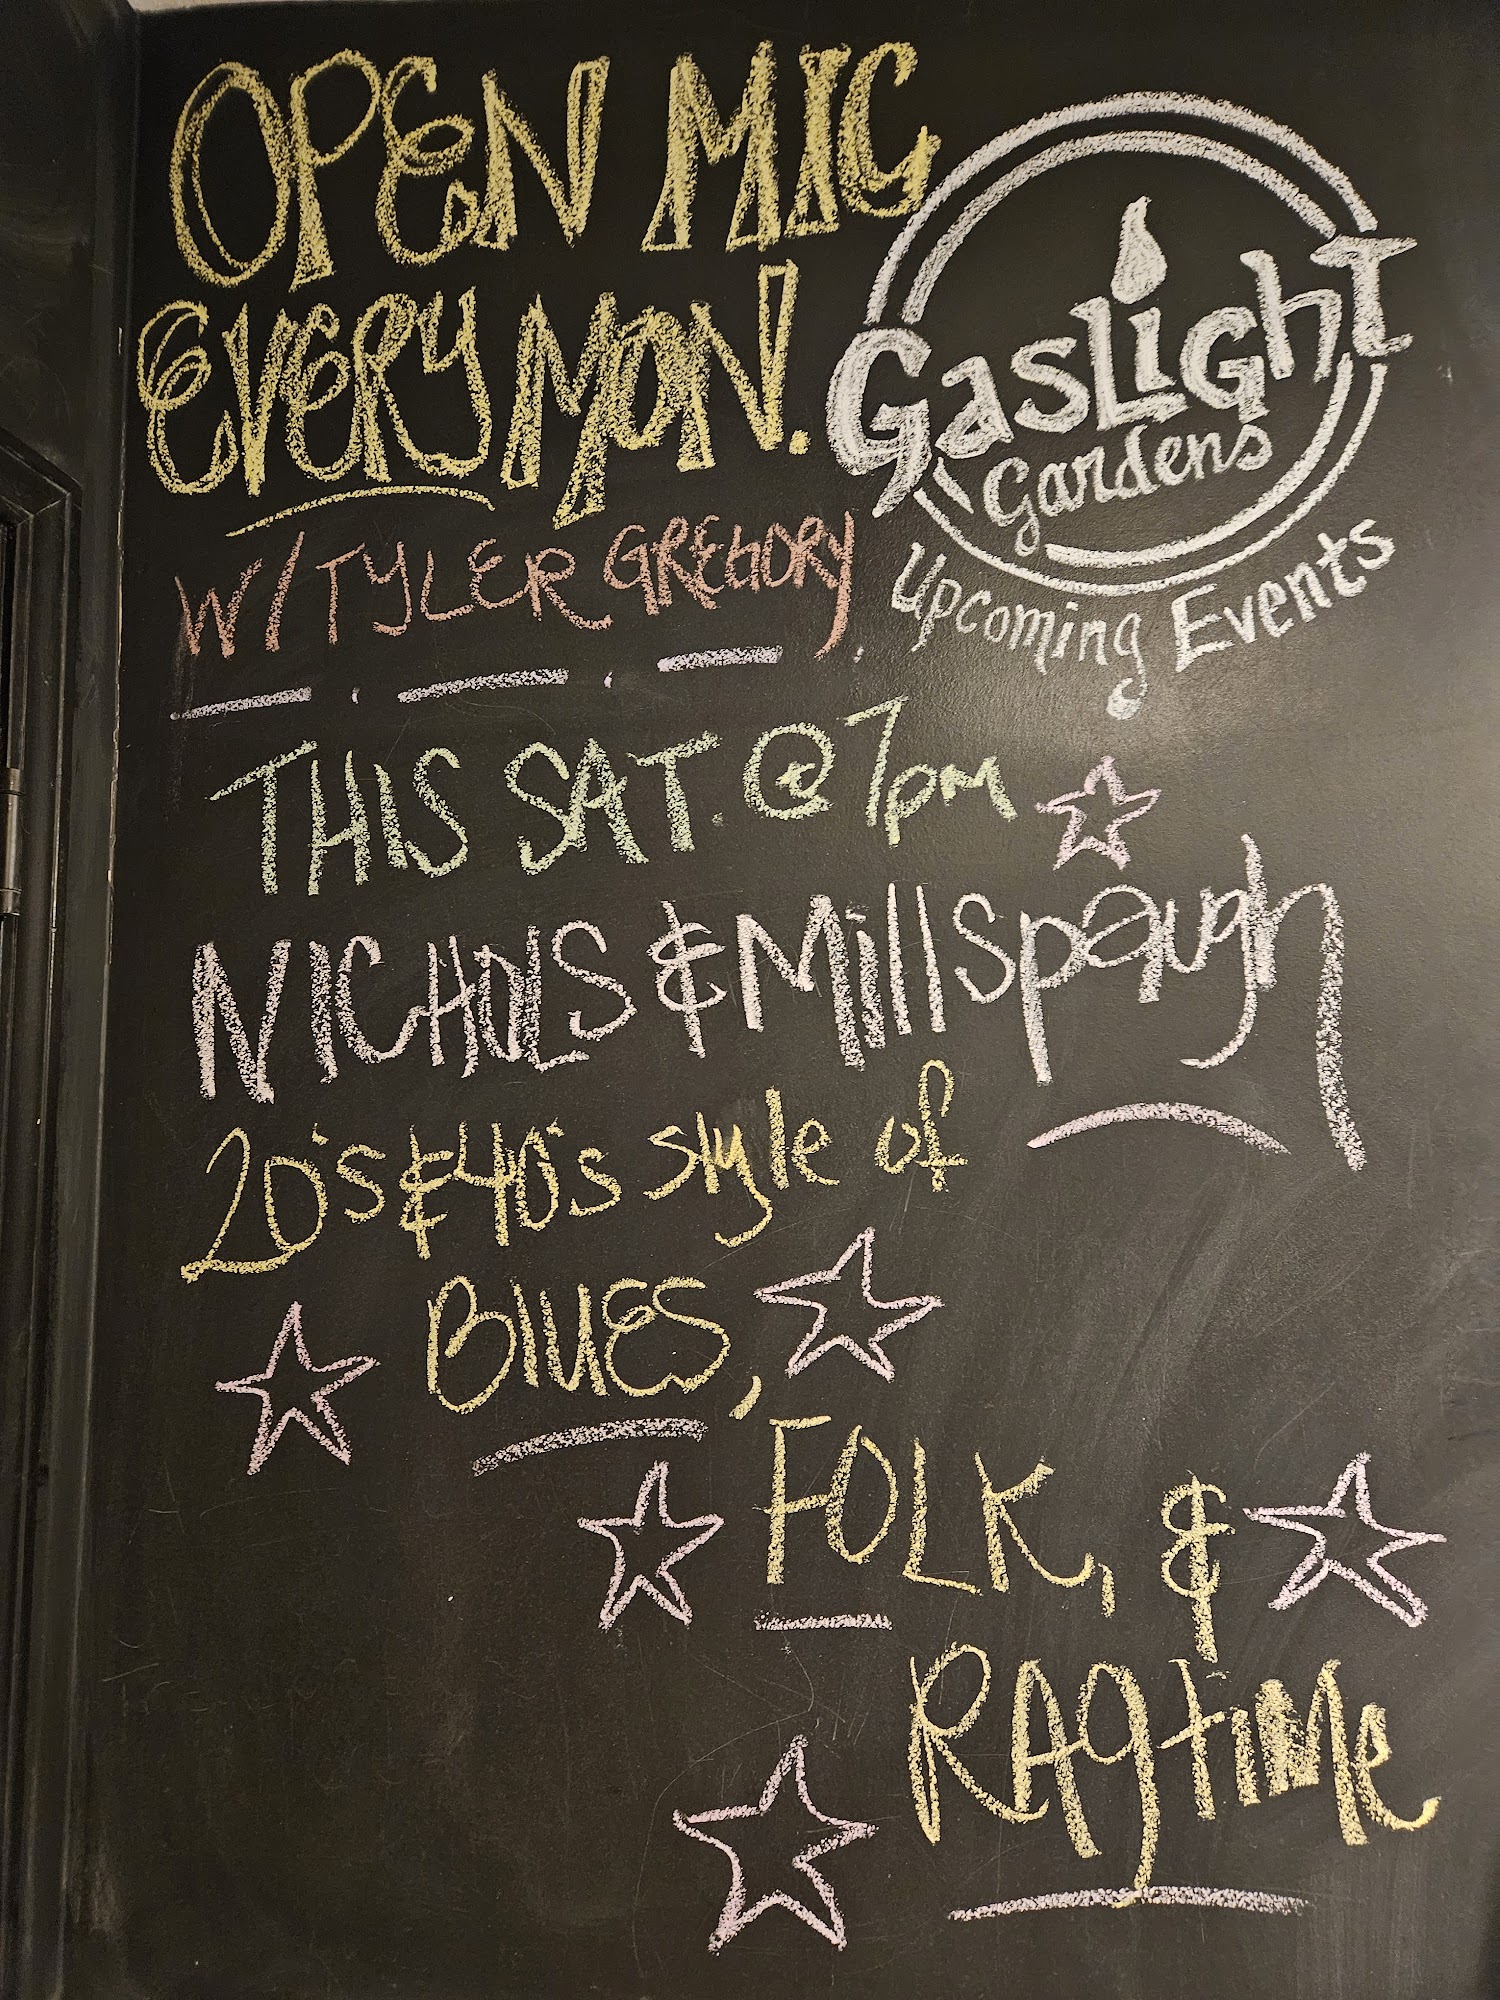 OPEN MIC
EVERY MON.
W/ TYLER GREGORY
GasLighT
Gardens
Upcoming Events
THIS SAT. @ 7pm
NICHOLS & Millspaugh
20's & 40's style of
Blues,
FOLK, &
RAgtime